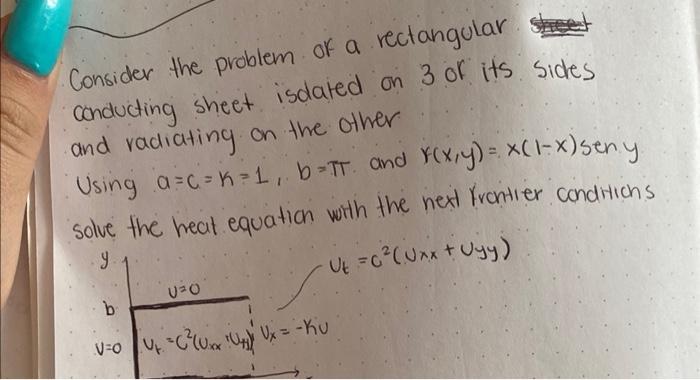 Consider the problem of a rectangular
conducting sheet isolated on 3 of its sides
and radiating on the other
Using a=c=K=1, b=π and f(x,y)= x(1-x)sen y
solve the heat equation with the next frontier conditions
y
Ut =c²(Uxx + Uyy)
U=0
b
U=0 Ut =c²(Uxx + Uyy) Ux = -KU